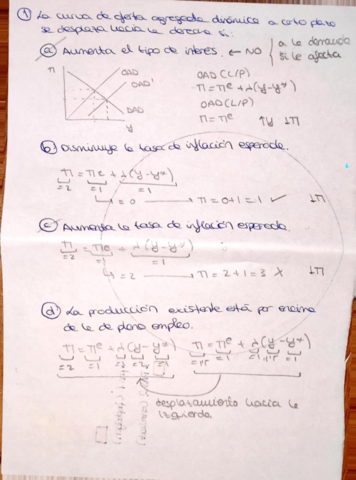 ① La curva de oferta agregada dinámica a corto plazo
se desplaza hacia la derecha si:
ⓐ Aumenta el tipo de interés. ← NO { a la demanda
sí le afecta
π OAD OAD' DAD y
OAD (L/P)
π = πe + λ(y-y*)
OAD (L/P)
π = πe ↑y ↓π
ⓑ Disminuye la tasa de inflación esperada.
π = πe + λ(y-y*)
=2 =1 =1
↳ = 0 → π = 0+1 = 1 ✓ ↓π
ⓒ Aumenta la tasa de inflación esperada.
π = πe + λ(y-y*)
=2 =1 =1
↳ = 2 → π = 2+1 = 3 X ↓π
ⓓ La producción existente está por encima
de la de pleno empleo.
π = πe + λ(y-y*) π = πe + λ(y-y*)
desplazamiento hacia la
izquierda